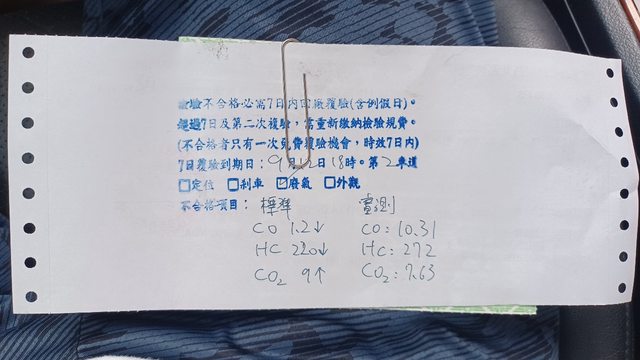 檢驗不合格必需7日內回廠覆驗(含例假日)。
超過7日及第二次複驗,需重新繳納檢驗規費。
(不合格者只有一次免費覆驗機會,時效7日內)
7日覆驗到期日:9月12日18時。第2車道
□定位 □剎車 ☑廢氣 □外觀
不合格項目: 標準 實測
CO 1.2↓ CO: 10.31
HC 220↓ HC: 272
CO₂ 9↑ CO₂: 7.63